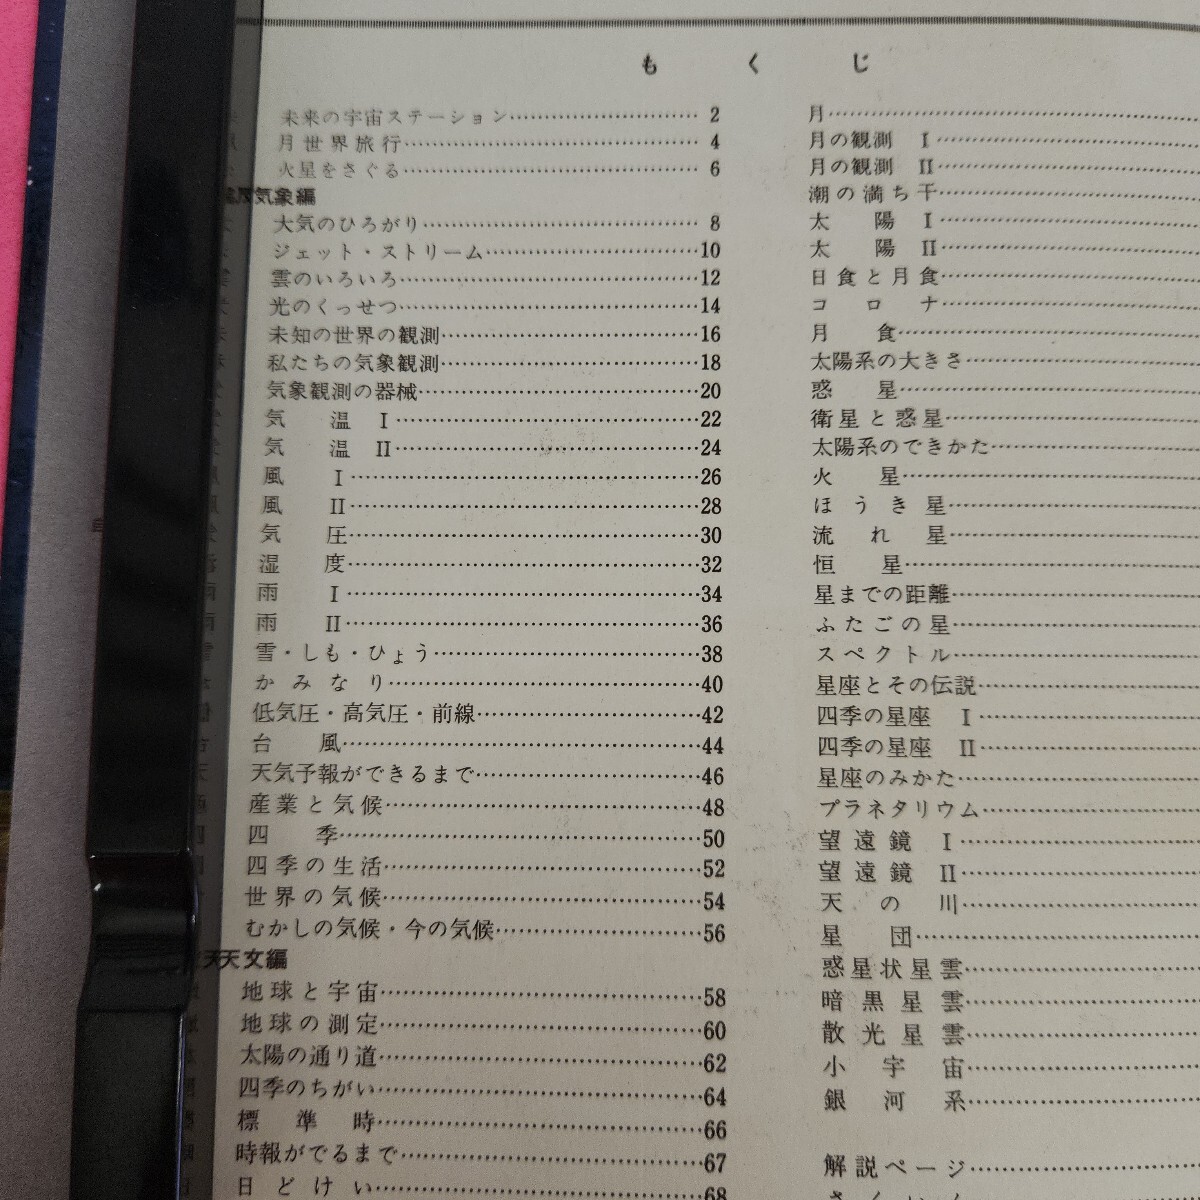 もくじ
未来の宇宙ステーション…………2
月世界旅行…………4
火星をさぐる…………6
気象編
大気のひろがり…………8
ジェット・ストリーム…………10
雲のいろいろ…………12
光のくっせつ…………14
未知の世界の観測…………16
私たちの気象観測…………18
気象観測の器械…………20
気温 I…………22
気温 II…………24
風 I…………26
風 II…………28
気圧…………30
湿度…………32
雨 I…………34
雨 II…………36
雪・しも・ひょう…………38
かみなり…………40
低気圧・高気圧・前線…………42
台風…………44
天気予報ができるまで…………46
産業と気候…………48
四季…………50
四季の生活…………52
世界の気候…………54
むかしの気候・今の気候…………56
天文編
地球と宇宙…………58
地球の測定…………60
太陽の通り道…………62
四季のちがい…………64
標準時…………66
時報がでるまで…………67
日どけい…………68
月…………
月の観測 I…………
月の観測 II…………
潮の満ち干…………
太陽 I…………
太陽 II…………
日食と月食…………
コロナ…………
月食…………
太陽系の大きさ…………
惑星…………
衛星と惑星…………
太陽系のできかた…………
火星…………
ほうき星…………
流れ星…………
恒星…………
星までの距離…………
ふたごの星…………
スペクトル…………
星座とその伝説…………
四季の星座 I…………
四季の星座 II…………
星座のみかた…………
プラネタリウム…………
望遠鏡 I…………
望遠鏡 II…………
天の川…………
星団…………
惑星状星雲…………
暗黒星雲…………
散光星雲…………
小宇宙…………
銀河系…………
解説ページ…………